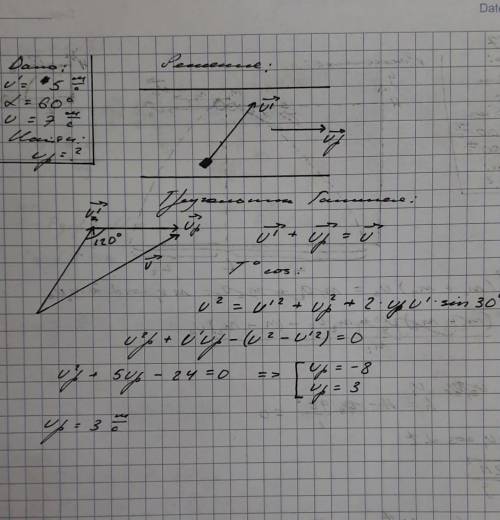 Date
Дано:
v' = 5 м/с
α = 60°
v = 7 м/с
Найти:
vр = ?
Решение:
v⃗'
v⃗р
Треугольник Галилея:
v⃗'
v⃗р
120°
v⃗
v⃗' + v⃗р = v⃗
T° cos:
v² = v'² + vр² + 2·vрv'·sin30°
v²р + v'vр − (v² − v'²) = 0
v²р + 5vр − 24 = 0 => [ vр = −8
vр = 3
vр = 3 м/с